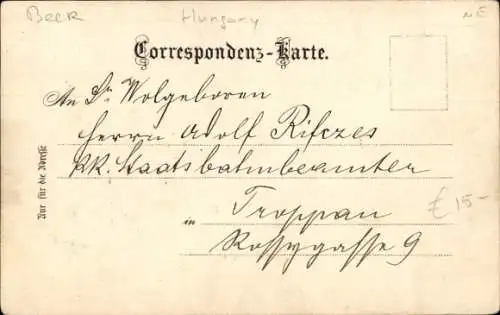 Beer Hungary NE
Correspondenz-Karte.
An Sr Wolgeboren
Herrn Adolf Rifczes
kk. Staatsbahnbeamter
in Troppau
£ 15-
Rossygasse 9
Nur für die Adresse